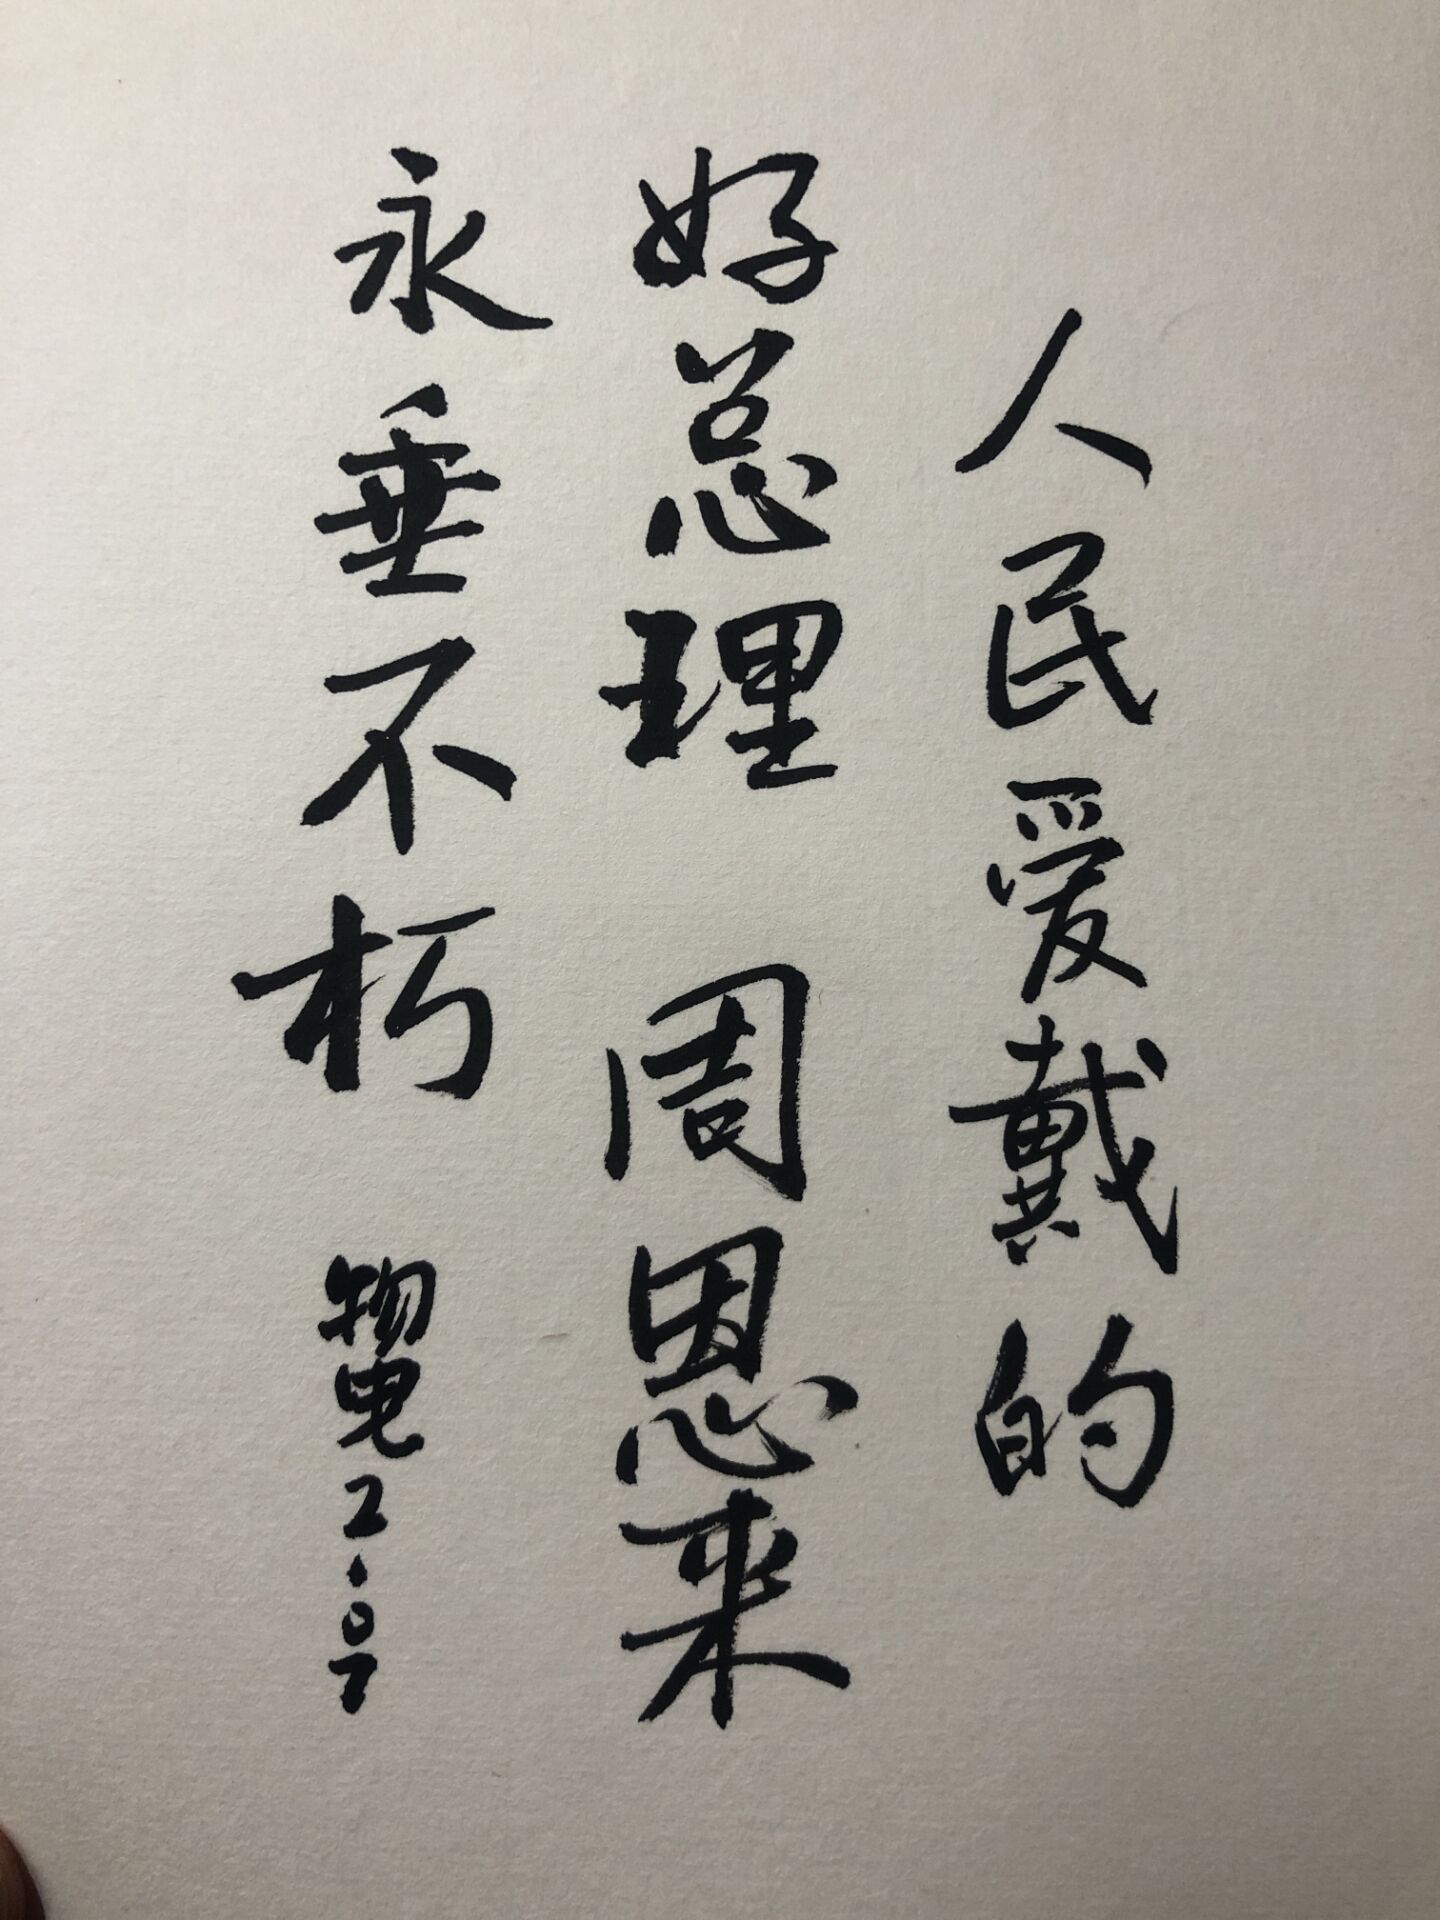 人民爱戴的
好总理 周恩来
永垂不朽 物电2.07